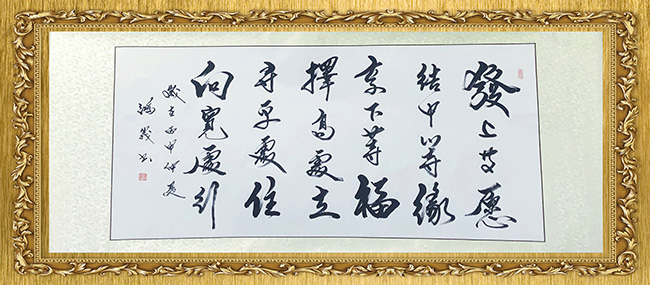 發上等愿
結中等緣
享下等福
擇高處立
寻平處住
向寬處行
歲在丙申仲夏
義书